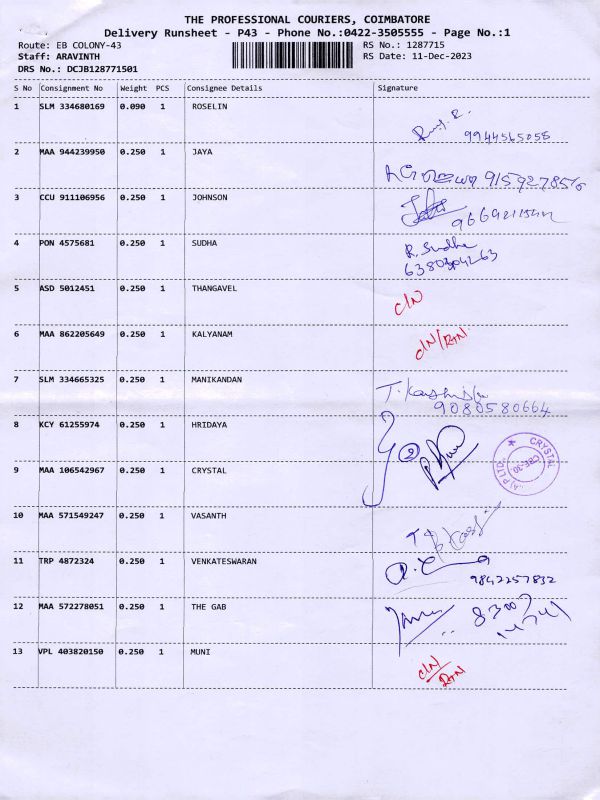 THE PROFESSIONAL COURIERS, COIMBATORE
Delivery Runsheet - P43 - Phone No.:0422-3505555 - Page No.:1
Route: EB COLONY-43 RS No.: 1287715
Staff: ARAVINTH RS Date: 11-Dec-2023
DRS No.: DCJB128771501
S No Consignment No Weight PCS Consignee Details Signature
1 SLM 334680169 0.090 1 ROSELIN
9944565055
2 MAA 944239950 0.250 1 JAYA
3 CCU 911106956 0.250 1 JOHNSON
4 PON 4575681 0.250 1 SUDHA R. Sudha
6380304263
5 ASD 5012451 0.250 1 THANGAVEL C/N
6 MAA 862205649 0.250 1 KALYANAM C/N/RTN
7 SLM 334665325 0.250 1 MANIKANDAN
9080580664
8 KCY 61255974 0.250 1 HRIDAYA
2
CRYSTAL
CBE-30
(A) P LTD.
9 MAA 106542967 0.250 1 CRYSTAL
10 MAA 571549247 0.250 1 VASANTH
11 TRP 4872324 0.250 1 VENKATESWARAN
9842257832
12 MAA 572278051 0.250 1 THE GAB
13 VPL 403820150 0.250 1 MUNI C/N
RTN